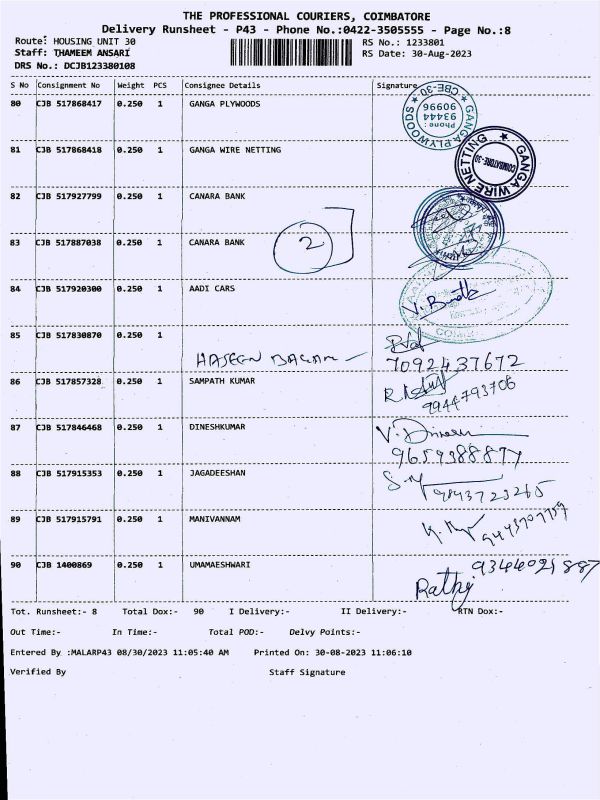 THE PROFESSIONAL COURIERS, COIMBATORE
Delivery Runsheet - P43 - Phone No.:0422-3505555 - Page No.:8
Route: HOUSING UNIT 30
RS No.: 1233801
Staff: THAMEEM ANSARI
RS Date: 30-Aug-2023
DRS No.: DCJB123380108
S No Consignment No Weight PCS Consignee Details Signature
80 CJB 517868417 0.250 1 GANGA PLYWOODS
GANGA PLYWOODS CBE-30 Phone: 93444 90996
81 CJB 517868418 0.250 1 GANGA WIRE NETTING
GANGA WIRE NETTING COIMBATORE-30
82 CJB 517927799 0.250 1 CANARA BANK
83 CJB 517887038 0.250 1 CANARA BANK
2
84 CJB 517920300 0.250 1 AADI CARS
85 CJB 517830870 0.250 1
7092437672
86 CJB 517857328 0.250 1 SAMPATH KUMAR
9944793706
87 CJB 517846468 0.250 1 DINESHKUMAR
9659388877
88 CJB 517915353 0.250 1 JAGADEESHAN
9843723265
89 CJB 517915791 0.250 1 MANIVANNAM
90 CJB 1400869 0.250 1 UMAMAESHWARI
Tot. Runsheet:- 8 Total Dox:- 90 I Delivery:- II Delivery:- RTN Dox:-
Out Time:- In Time:- Total POD:- Delvy Points:-
Entered By :MALARP43 08/30/2023 11:05:40 AM Printed On: 30-08-2023 11:06:10
Verified By Staff Signature